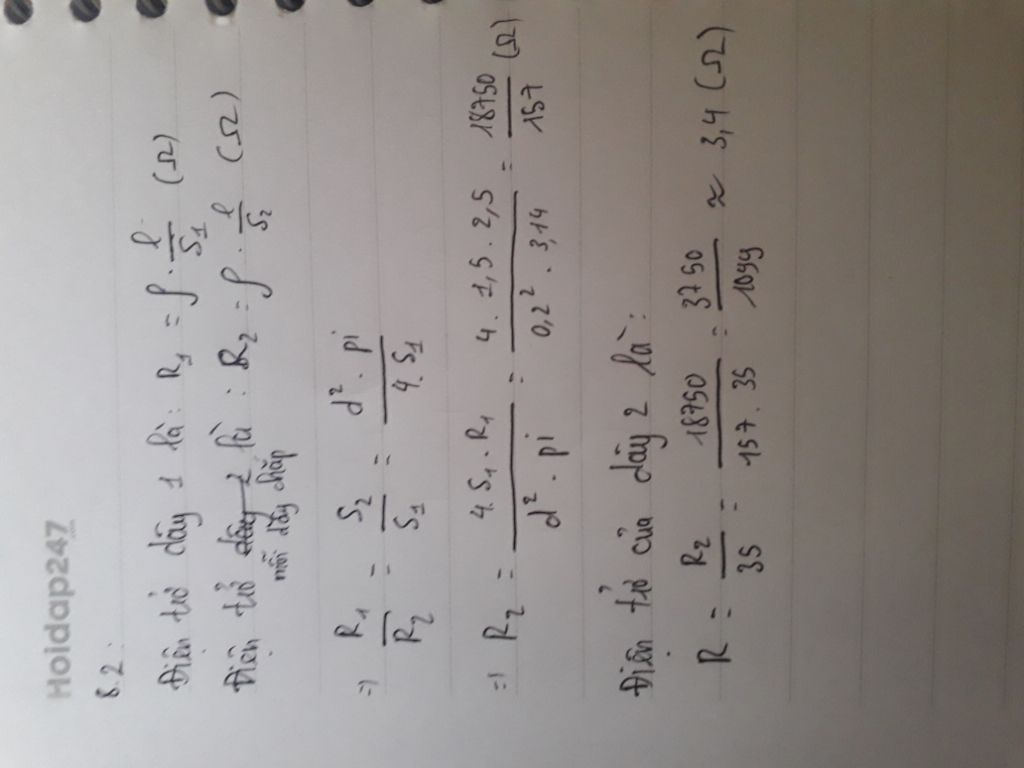 Hoidap247
8.2:
Điện trở dây 1 là: R₁ = ρ . l/S₁ (Ω)
Điện trở dây 2 là: R₂ = ρ . l/S₂ (Ω)
mỗi dây chập
=> R₁/R₂ = S₂/S₁ = d² . pi/4.S₁
=> R₂ = 4.S₁.R₁/d² . pi = 4 . 1,5 . 2,5/0,2² . 3,14 = 18750/157 (Ω)
Điện trở của dây 2 là:
R = R₂/35 = 18750/157 . 35 = 3750/1099 ≈ 3,4 (Ω)